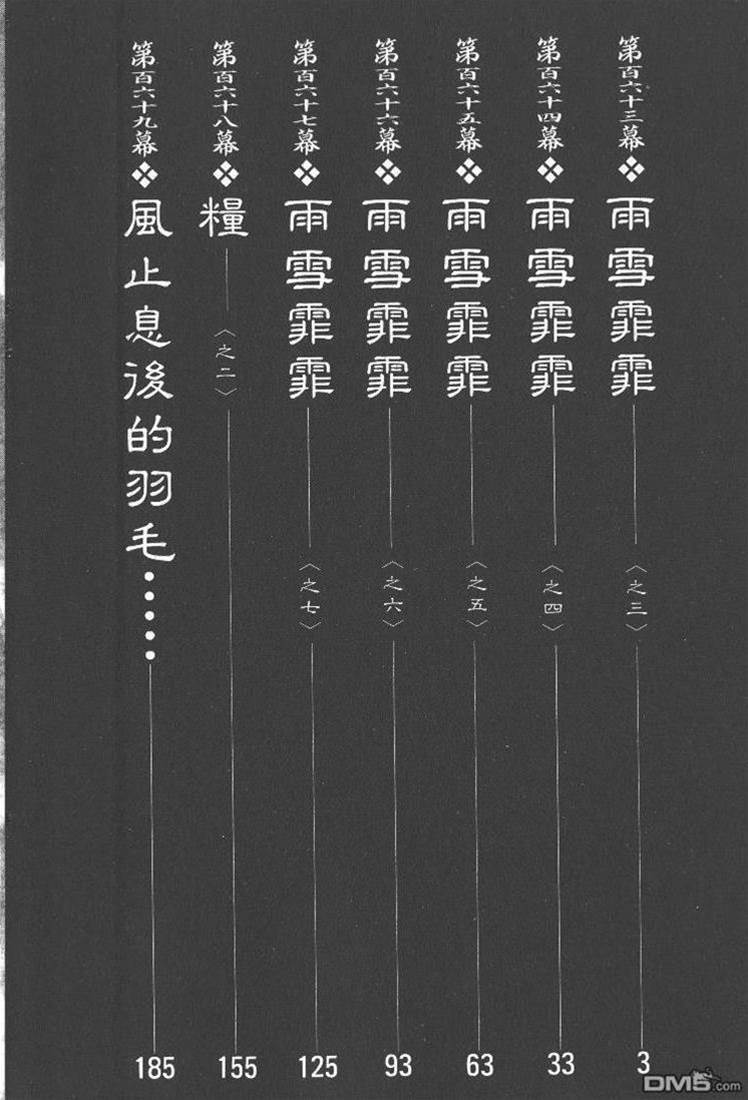 第百六十三幕❖雨雪霏霏〈之三〉3
第百六十四幕❖雨雪霏霏〈之四〉33
第百六十五幕❖雨雪霏霏〈之五〉63
第百六十六幕❖雨雪霏霏〈之六〉93
第百六十七幕❖雨雪霏霏〈之七〉125
第百六十八幕❖糧〈之二〉155
第百六十九幕❖風止息後的羽毛•••••185
DM5.com